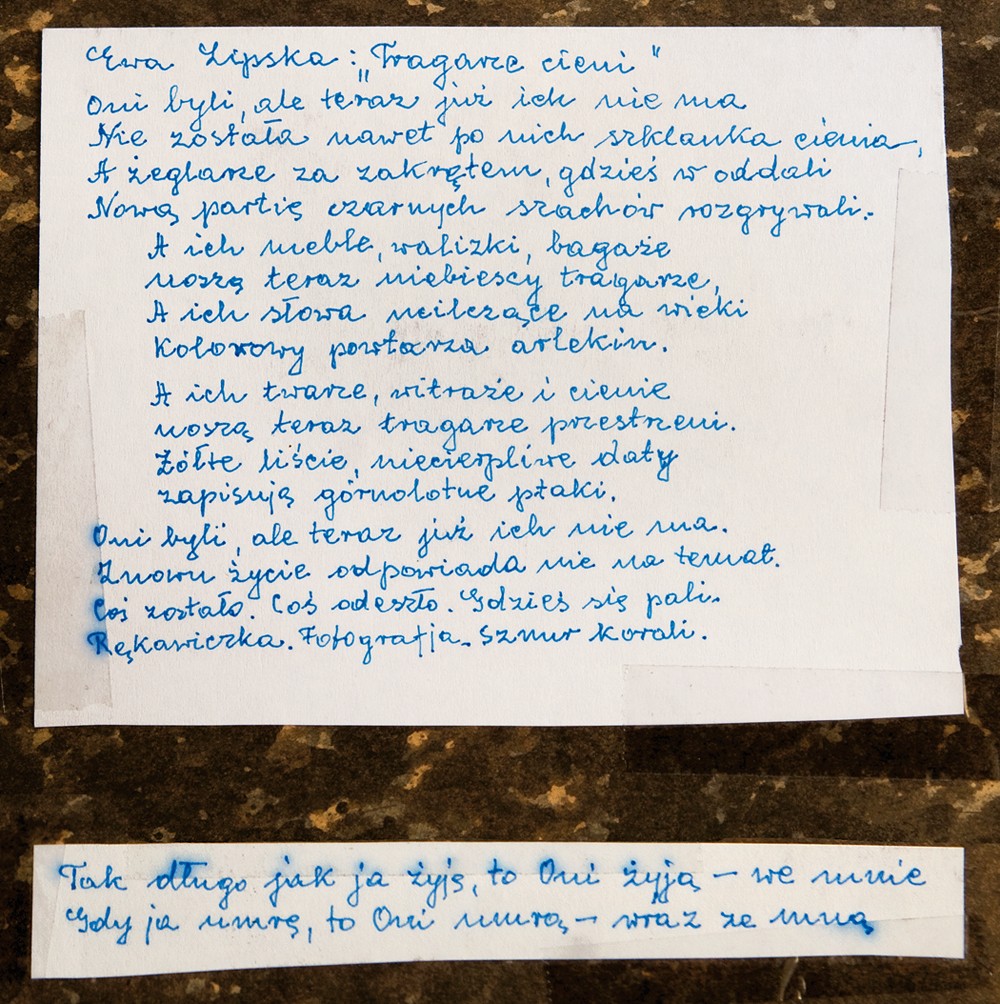 Ewa Lipska: „Tragarze cieni"
Oni byli, ale teraz już ich nie ma
Nie została nawet po nich szklanka cienia,
A żeglarze za zakrętem, gdzieś w oddali
Nową partię czarnych szachów rozgrywali.
A ich meble, walizki, bagaże
noszą teraz niebiescy tragarze,
A ich słowa milczące na wieki
kolorowy powtarza arlekin.
A ich twarze, witraże i cienie
noszą teraz tragarze przestrzeni.
Żółte liście, niecierpliwe daty
zapisują górnolotne ptaki.
Oni byli, ale teraz już ich nie ma.
Znowu życie odpowiada nie na temat.
Coś zostało. Coś odeszło. Gdzieś się pali.
Rękawiczka. Fotografja. Sznur korali.
Tak długo jak ja żyję, to Oni żyją – we mnie
Gdy ja umrę, to Oni umrą – wraz ze mną